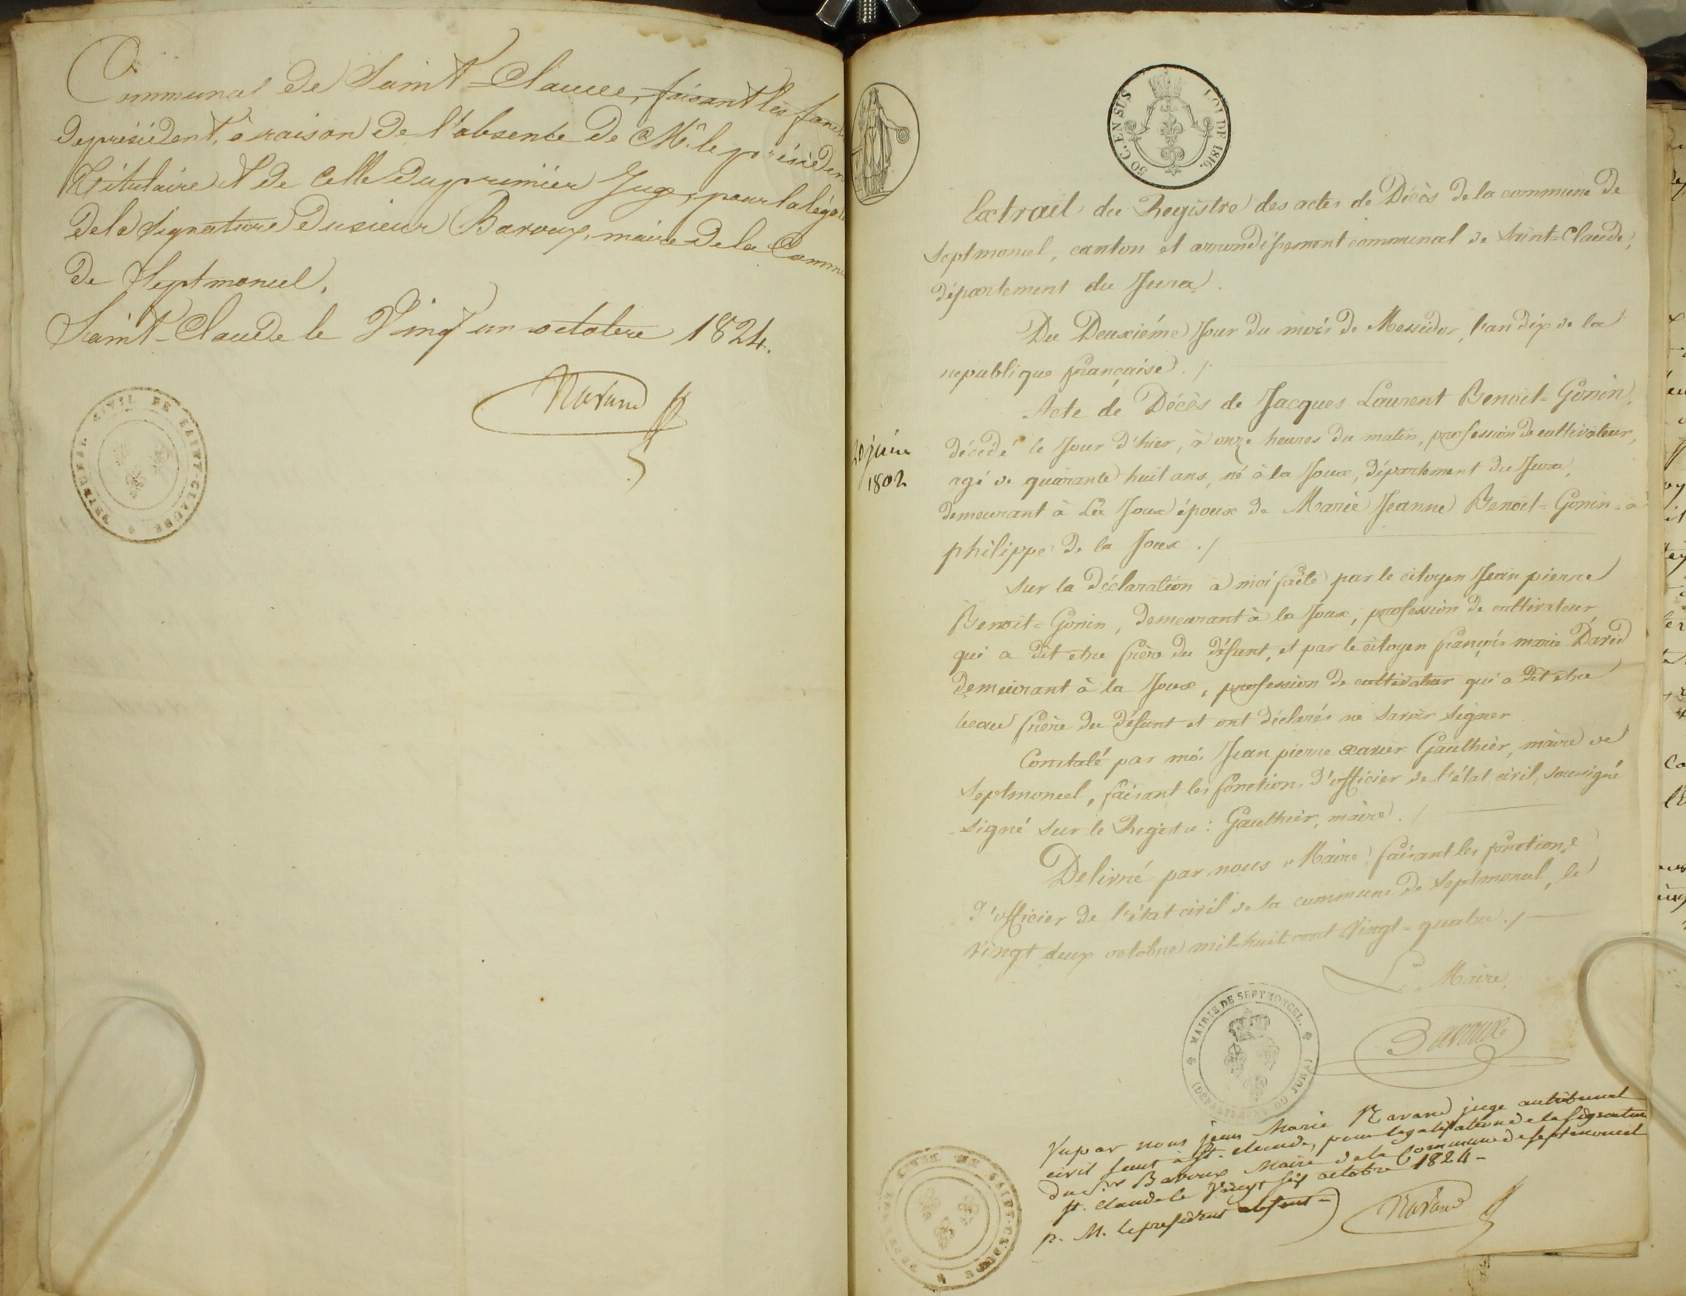 Communal de Saint-Claude, faisant les fonc
de président, à raison de l'absence de Mr. le présiden
titulaire et de celle du premier Juge, pour la léga
de la signature du sieur Baroux, maire de la Comm
de Septmoncel.
Saint-Claude le Vingt un octobre 1824.
Navand
TRIBUNAL CIVIL DE SAINT-CLAUDE
50 C. EN SUS
LOI DE 1816.
Extrait du Registre des actes de Décès de la commune de
Septmoncel, canton et arrondissement communal de Saint-Claude,
département du Jura.
Du Deuxiéme Jour du mois de Messidor, l'an dix de la
republique française. /.
Acte de Décès de Jacques Laurent Benoit-Gonin,
20 juin
1802
décédé le Jour d'hier, à onze heures du matin, profession de cultivateur,
agé de quarante huit ans, né à la Joux, département du Jura,
demeurant à La Joux époux de Marie Jeanne Benoit-Gonin à
philippe de la Joux. /.
Sur la déclaration à moi faite par le citoyen Jean pierre
Benoit-Gonin, demeurant à la Joux, profession de cultivateur
qui a dit etre frère du défunt, et par le citoyen françois marie David
demeurant à la Joux, profession de cultivateur qui a dit etre
beau frère du défunt et ont déclarés ne savoir signer
Constaté par moi Jean pierre xavier Gauthier, maire de
Septmoncel, faisant les fonctions d'officier de l'état civil, soussigné
signé sur le Registre: Gauthier, maire. /.
Delivré par nous Maire faisant les fonctions
d'officier de l'état civil de la commune de Septmoncel, le
vingt deux octobre mil huit cent vingt-quatre. /.
Le Maire,
Baroux
MAIRIE DE SEPTMONCEL.
(DÉPARTEMENT DU JURA)
Vu par nous jean Marie Navand juge au tribunal
civil séant à St. claude, pour legalisation de la signature
du Sr. Baroux Maire de la Commune de septmoncel
St. Claude le vingt six octobre 1824-
p. M. le president absent-
Navand
TRIBUNAL CIVIL DE SAINT-CLAUDE